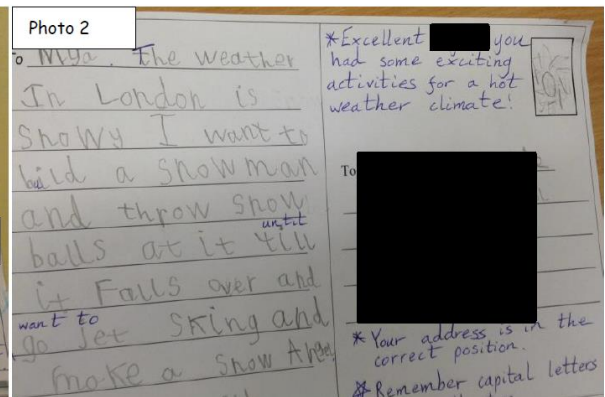 Photo 2
To Mya. The weather
In London is
Snowy I want to
build a snowman
and throw snow
until
balls at it till
it Falls over and
want to
go Jet Skiing and
make a snow Angel
*Excellent you
had some exciting
activities for a hot
weather climate!
To
* Your address is in the
correct position.
* Remember capital letters